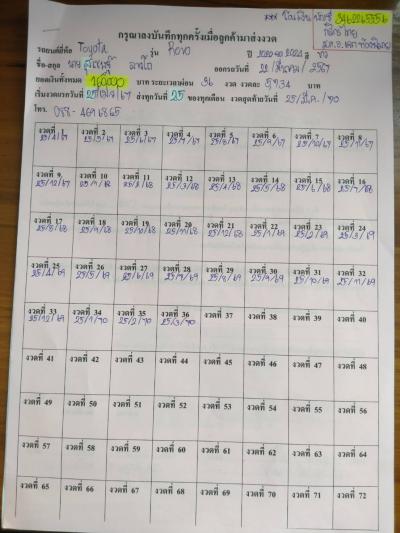 *** โอนเงิน บัญชี 3462065556
กสิกรไทย
กรุณาลงบันทึกทุกครั้งเมื่อลูกค้ามาส่งงวด
รถยนต์ยี่ห้อ Toyota รุ่น Revo ปี สี
ชื่อ-สกุล นาย ออกรถวันที่ 22/มีนาคม/2567
ยอดเงินทั้งหมด 160,000 บาท ระยะเวลาผ่อน 36 งวด งวดละ บาท
เริ่มงวดแรกวันที่ 25/4/67 ส่งทุกวันที่ 25 ของทุกเดือน งวดสุดท้ายวันที่ 25/มี.ค./70
โทร.
งวดที่ 1 งวดที่ 2 งวดที่ 3 งวดที่ 4 งวดที่ 5 งวดที่ 6 งวดที่ 7 งวดที่ 8
25/4/67 25/5/67 25/6/67 25/7/67 25/8/67 25/9/67 25/10/67 25/11/67
งวดที่ 9 งวดที่ 10 งวดที่ 11 งวดที่ 12 งวดที่ 13 งวดที่ 14 งวดที่ 15 งวดที่ 16
25/12/67 25/1/68 25/2/68 25/3/68 25/4/68 25/5/68 25/6/68 25/7/68
งวดที่ 17 งวดที่ 18 งวดที่ 19 งวดที่ 20 งวดที่ 21 งวดที่ 22 งวดที่ 23 งวดที่ 24
25/8/68 25/9/68 25/10/68 25/11/68 25/12/68 25/1/69 25/2/69 25/3/69
งวดที่ 25 งวดที่ 26 งวดที่ 27 งวดที่ 28 งวดที่ 29 งวดที่ 30 งวดที่ 31 งวดที่ 32
25/4/69 25/5/69 25/6/69 25/7/69 25/8/69 25/9/69 25/10/69 25/11/69
งวดที่ 33 งวดที่ 34 งวดที่ 35 งวดที่ 36 งวดที่ 37 งวดที่ 38 งวดที่ 39 งวดที่ 40
25/12/69 25/1/70 25/2/70 25/3/70
งวดที่ 41 งวดที่ 42 งวดที่ 43 งวดที่ 44 งวดที่ 45 งวดที่ 46 งวดที่ 47 งวดที่ 48
งวดที่ 49 งวดที่ 50 งวดที่ 51 งวดที่ 52 งวดที่ 53 งวดที่ 54 งวดที่ 55 งวดที่ 56
งวดที่ 57 งวดที่ 58 งวดที่ 59 งวดที่ 60 งวดที่ 61 งวดที่ 62 งวดที่ 63 งวดที่ 64
งวดที่ 65 งวดที่ 66 งวดที่ 67 งวดที่ 68 งวดที่ 69 งวดที่ 70 งวดที่ 71 งวดที่ 72